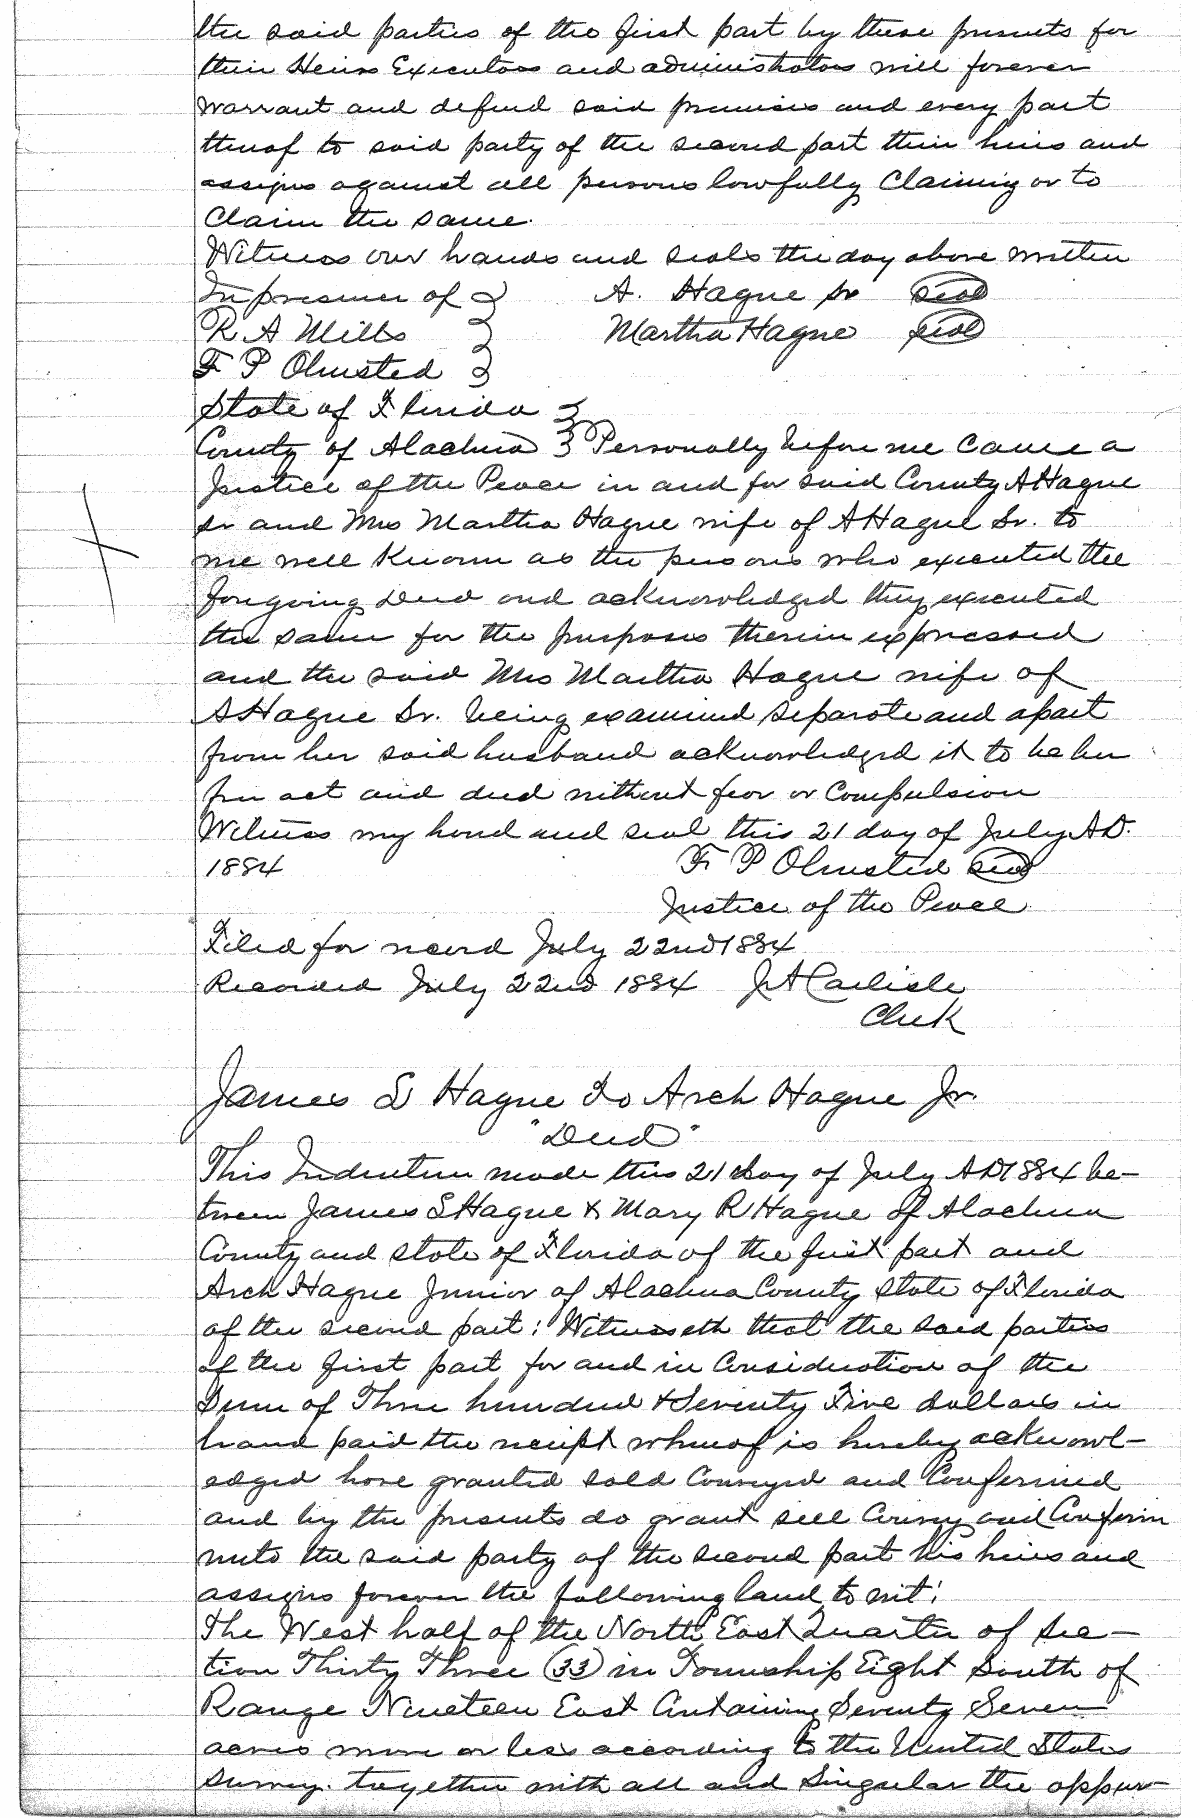 the said parties of the first part by these presents for
their Heirs Executors and administrators will forever
warrant and defend said premises and every part
thereof to said party of the second part their heirs and
assigns against all persons lawfully Claiming or to
Claim the same.
Witness our hands and seals the day above written
In presence of } A. Hague Sr seal
R A Mills } Martha Hague seal
F P Olmsted }
State of Florida }
County of Alachua } Personally before me Came a
Justice of the Peace in and for said County A Hague
Sr and Mrs Martha Hague wife of A Hague Sr. to
me well Known as the persons who executed the
foregoing Deed and acknowledged they executed
the same for the purposes therein expressed
and the said Mrs Martha Hague wife of
A Hague Sr. being examined Separate and apart
from her said husband acknowledged it to be her
free act and deed without fear or Compulsion
Witness my hand and seal this 21 day of July A.D.
1884 F P Olmsted seal
Justice of the Peace.
Filed for record July 22nd 1884
Recorded July 22nd 1884 J A Carlisle
Clerk
James S Hague To Arch Hague Jr.
"Deed"
This Indenture made this 21 day of July A D 1884 be-
tween James S Hague & Mary R Hague of Alachua
County and State of Florida of the first part and
Arch Hague Junior of Alachua County State of Florida
of the second part: Witnesseth that the said parties
of the first part for and in Consideration of the
Sum of Three hundred & Seventy Five dollars in
hand paid the receipt whereof is hereby acknowl-
edged have granted sold Conveyed and Confirmed
and by the presents do grant sell Convey and Confirm
unto the said party of the second part his heirs and
assigns forever the following land to wit:
The West half of the North East Quarter of Sec-
tion Thirty Three (33) in Township Eight South of
Range Nineteen East Containing Seventy Seven
acres more or less according to the United States
Survey. together with all and Singular the appur-